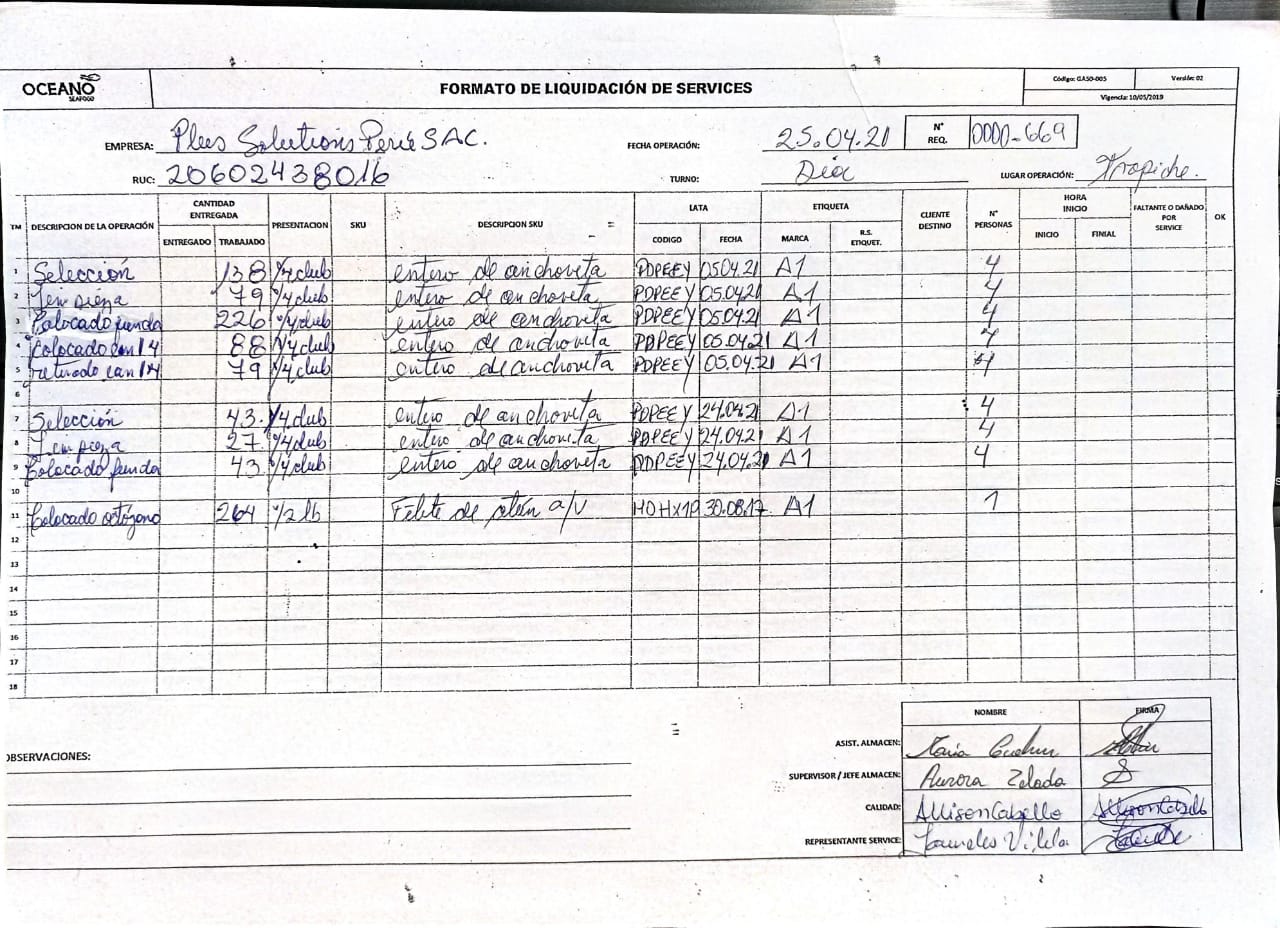 OCEANO
SEAFOOD
FORMATO DE LIQUIDACIÓN DE SERVICES
Código: GASO-005 Versión: 02
Vigencia: 10/05/2019
EMPRESA: Plus Solutions Perú SAC. FECHA OPERACIÓN: 25.04.21 N° REQ. 0000-669
RUC: 20602438016 TURNO: Día LUGAR OPERACIÓN: Trapiche.
TM DESCRIPCION DE LA OPERACIÓN CANTIDAD ENTREGADA PRESENTACION SKU DESCRIPCION SKU LATA ETIQUETA CLIENTE DESTINO N° PERSONAS HORA INICIO FALTANTE O DAÑADO POR SERVICE OK
ENTREGADO TRABAJADO CODIGO FECHA MARCA R.S. ETIQUET. INICIO FINIAL
1 Selección 138 1/4 club entero de anchoveta PDPEEY 05.04.21 A1 4
2 Limpieza 79 1/4 club entero de anchoveta PDPEEY 05.04.21 A1 4
3 Colocado funda 226 1/4 club entero de anchoveta PDPEEY 05.04.21 A1 4
4 Colocado can 14 88 1/4 club entero de anchoveta PDPEEY 05.04.21 A1 4
5 retirado can 14 79 1/4 club entero de anchoveta PDPEEY 05.04.21 A1 4
6
7 Selección 43. 1/4 club entero de anchoveta PDPEEY 24.04.21 A1 4
8 Limpieza 27. 1/4 club entero de anchoveta PDPEEY 24.04.21 A1 4
9 Colocado funda 43 1/4 club entero de anchoveta PDPEEY 24.04.21 A1 4
10
11 Colocado octógono 264 1/2 lb Filete de atún a/v HOHX19 30.08.17. A1 1
12
13
14
15
16
17
18
NOMBRE FIRMA
OBSERVACIONES:
ASIST. ALMACEN: María
SUPERVISOR / JEFE ALMACEN: Aurora Zelada
CALIDAD: Allison Cabello
REPRESENTANTE SERVICE: Vilela